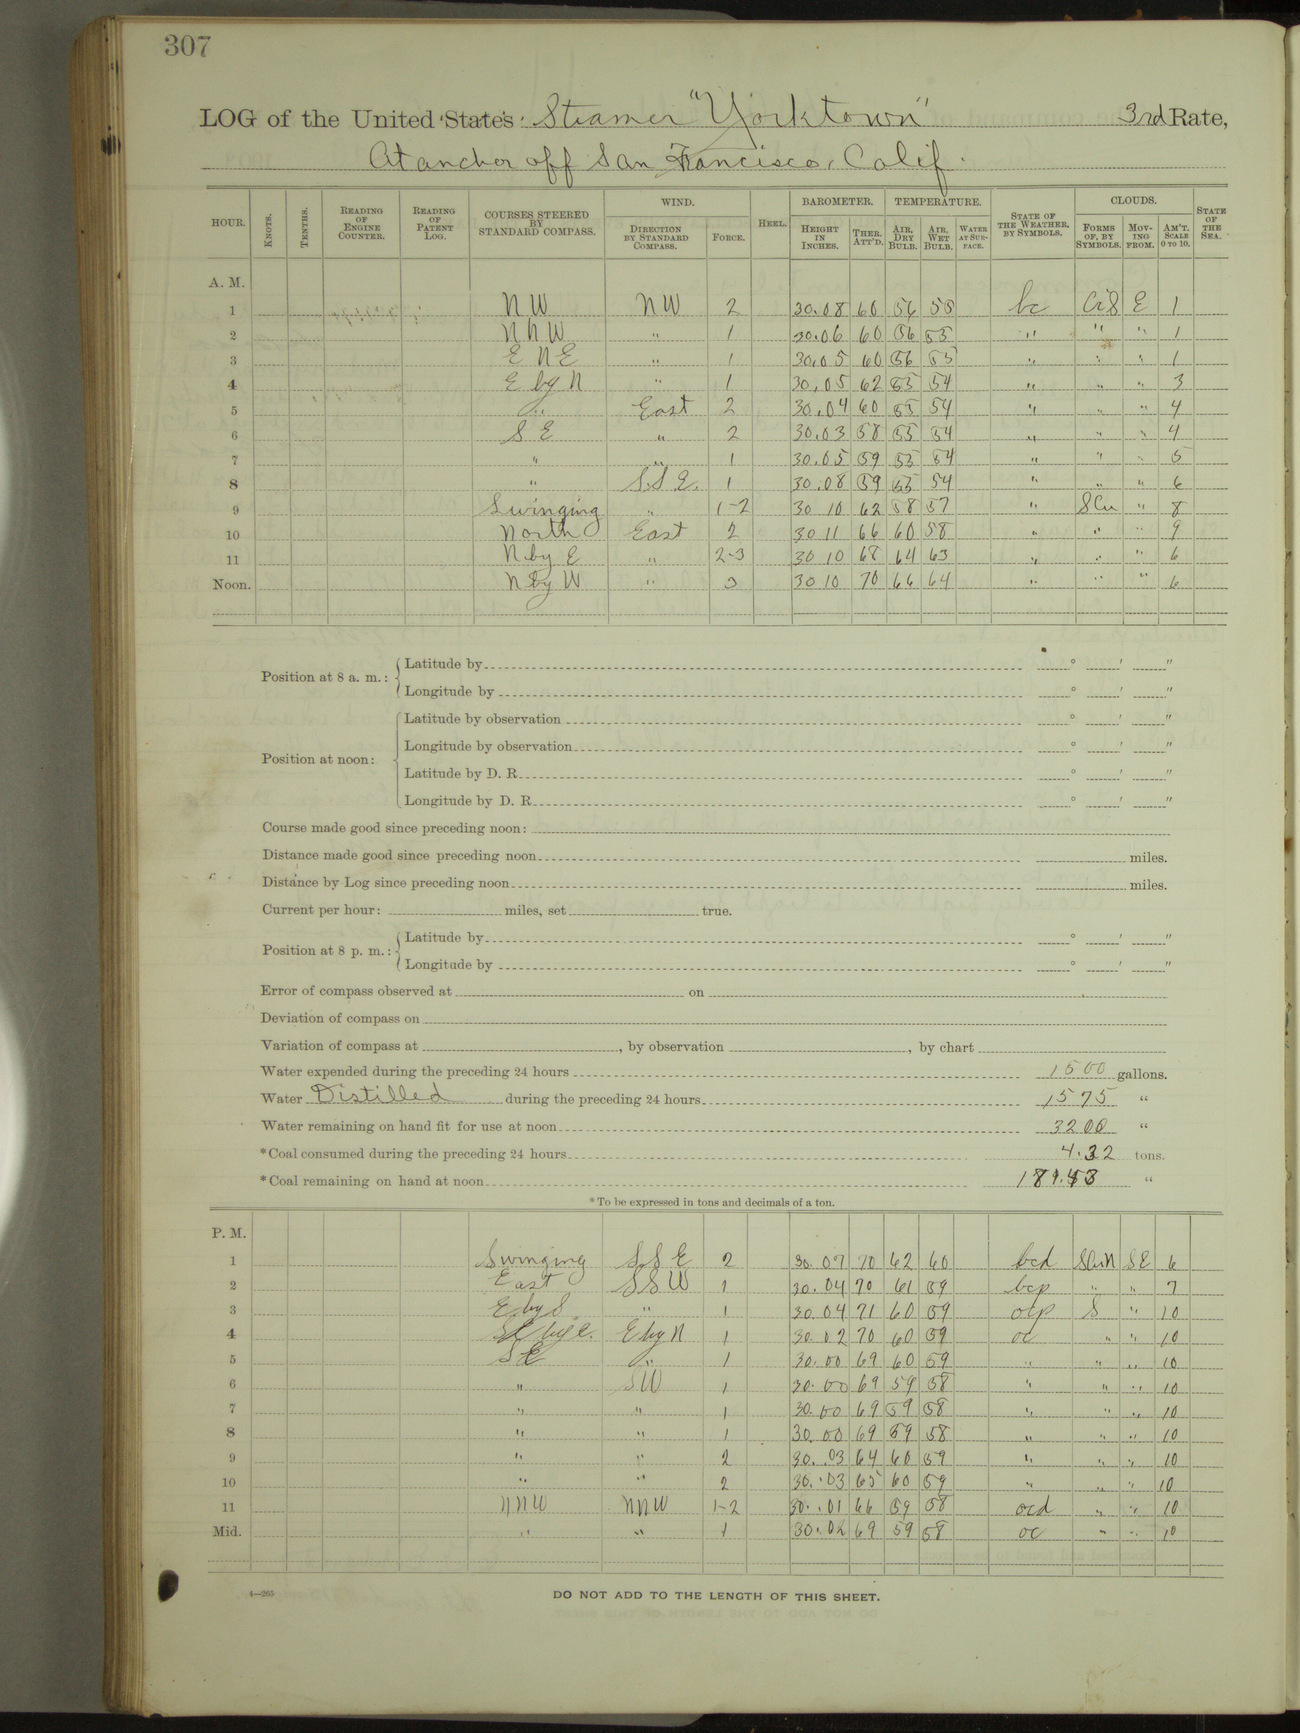 307
LOG of the United States Steamer "Yorktown" 3rd Rate,
At anchor off San Francisco, Calif.
HOUR. KNOTS. TENTHS. READING OF ENGINE COUNTER. READING OF PATENT LOG. COURSES STEERED BY STANDARD COMPASS. WIND. DIRECTION BY STANDARD COMPASS. FORCE. HEEL. BAROMETER. HEIGHT IN INCHES. THER. ATT'D. TEMPERATURE. AIR, DRY BULB. AIR, WET BULB. WATER AT SURFACE. STATE OF THE WEATHER, BY SYMBOLS. CLOUDS. FORMS OF, BY SYMBOLS. MOVING FROM. AM'T. SCALE 0 TO 10. STATE OF THE SEA.
A. M.
1 NW NW 2 30.08 60 56 55 bc CiS E 1
2 NNW " 1 30.06 60 56 55 " " " 1
3 ENE " 1 30.05 60 56 55 " " " 1
4 E by N " 1 30.05 62 55 54 " " " 3
5 " East 2 30.04 60 55 54 " " " 4
6 SE " 2 30.03 58 55 54 " " " 4
7 " " 1 30.05 59 55 54 " " " 5
8 " S.S.E. 1 30.08 59 55 54 " " " 6
9 Swinging " 1-2 30 10 62 58 57 " SCu " 8
10 North East 2 30 11 66 60 58 " " " 9
11 N by E " 2-3 30 10 68 64 63 " " " 6
Noon. N by W " 3 30 10 70 66 64 " " " 6
Position at 8 a. m.: Latitude by ° ' "
Longitude by ° ' "
Position at noon: Latitude by observation ° ' "
Longitude by observation ° ' "
Latitude by D. R. ° ' "
Longitude by D. R. ° ' "
Course made good since preceding noon:
Distance made good since preceding noon miles.
Distance by Log since preceding noon miles.
Current per hour: miles, set true.
Position at 8 p. m.: Latitude by ° ' "
Longitude by ° ' "
Error of compass observed at on
Deviation of compass on
Variation of compass at , by observation , by chart
Water expended during the preceding 24 hours 1500 gallons.
Water Distilled during the preceding 24 hours 1575 "
Water remaining on hand fit for use at noon 3200 "
*Coal consumed during the preceding 24 hours 4.32 tons.
*Coal remaining on hand at noon "
*To be expressed in tons and decimals of a ton.
P. M.
1 Swinging SSE 2 30.07 70 62 60 bcd SCuN SE 6
2 East SSW 1 30.04 70 61 59 bcp " " 7
3 E by S " 1 30.04 71 60 59 ocp S " 10
4 SE by E. E by N 1 30.02 70 60 59 oc " " 10
5 SE " 1 30.00 69 60 59 " " " 10
6 " SW 1 30.00 69 59 58 " " " 10
7 " " 1 30.00 69 59 58 " " " 10
8 " " 1 30.00 69 59 58 " " " 10
9 " " 2 30.03 64 60 59 " " " 10
10 " " 2 30.03 65 60 59 " " " 10
11 NNW NNW 1-2 30.01 66 59 58 ocd " " 10
Mid. " " 1 30.02 69 59 58 oc " " 10
4—265
DO NOT ADD TO THE LENGTH OF THIS SHEET.